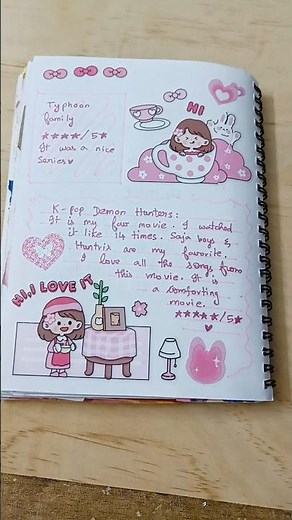 HI
Typhoon
family
★★★★/5★
It was a nice
Series♥
K-pop Demon Hunters:
It is my fav movie. I watched
it like 14 times. Saja boys &
Huntrix are my favorite.
I love all the songs from
this movie. It is
a comforting
movie.
★★★★★/5★
♥
HI, I LOVE IT